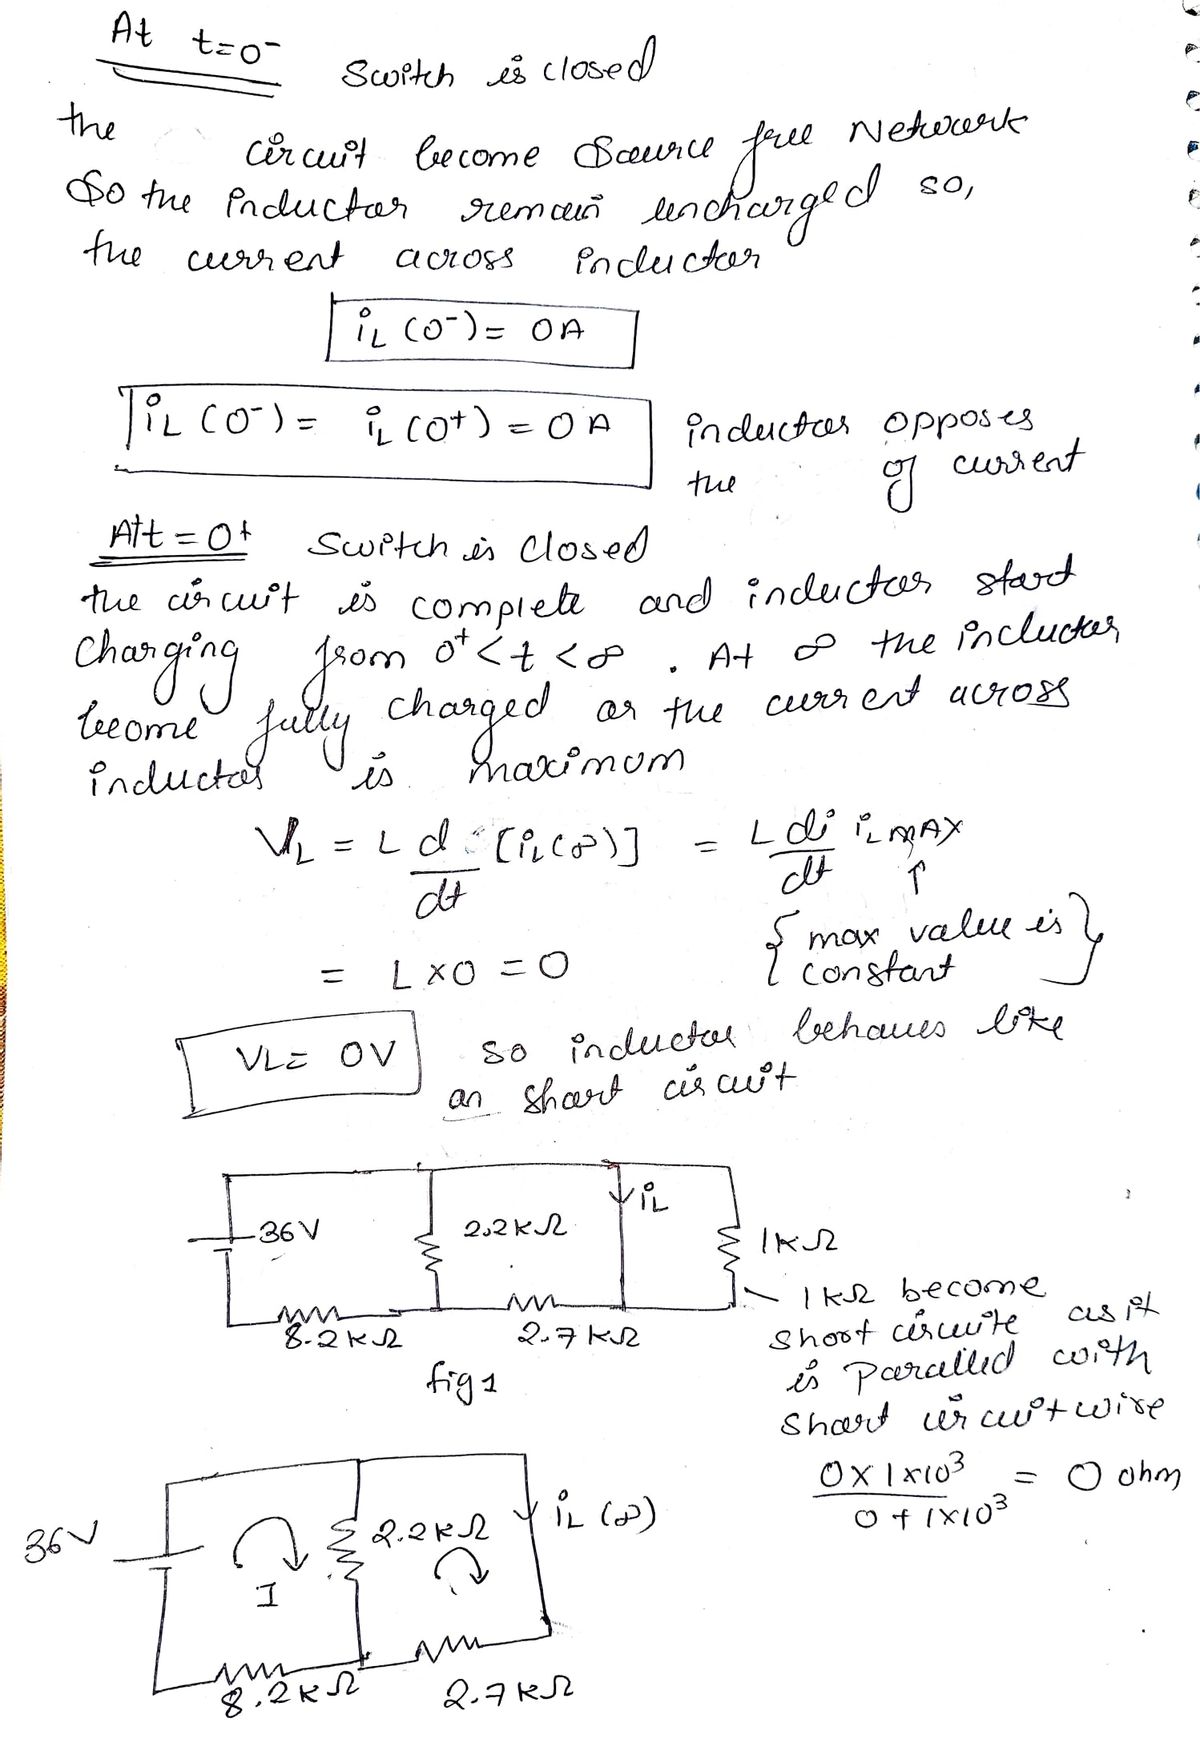 At t=0⁻
Switch is closed
the circuit become Source free Network
So the inductor remain uncharged so,
the current across inductor
iL (0⁻) = 0A
iL (0⁻) = iL (0⁺) = 0A
inductor opposes
the of current
At t = 0⁺ Switch is closed
the circuit is complete and inductor start
charging from 0⁺ < t < ∞ . At ∞ the inductor
become fully charged or the current across
inductor is maximum
VL = L d/dt [iL(∞)] = L di/dt iL MAX
↑
{ max value is
constant }
= L x 0 = 0
VL = 0V
so inductor behaves like
an short circuit
iL
36V
2.2KΩ
1KΩ
8.2KΩ
2.7KΩ
fig 1
1KΩ become
short circuite as it
is paralled with
short circuit wire
0 x 1x10³ / 0 + 1x10³ = 0 ohm
36V
I
2.2KΩ
iL (∞)
8.2KΩ
2.7KΩ